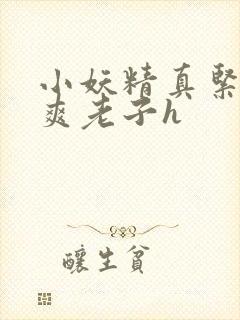 小妖精真紧
爽老子h
釀生貧